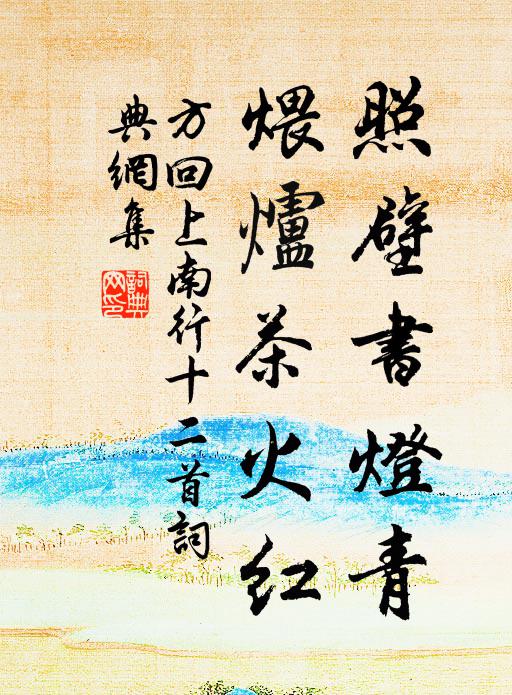 照壁書燈青
煨爐茶火紅
方回上南行十二首詞
典網集
詞典網印